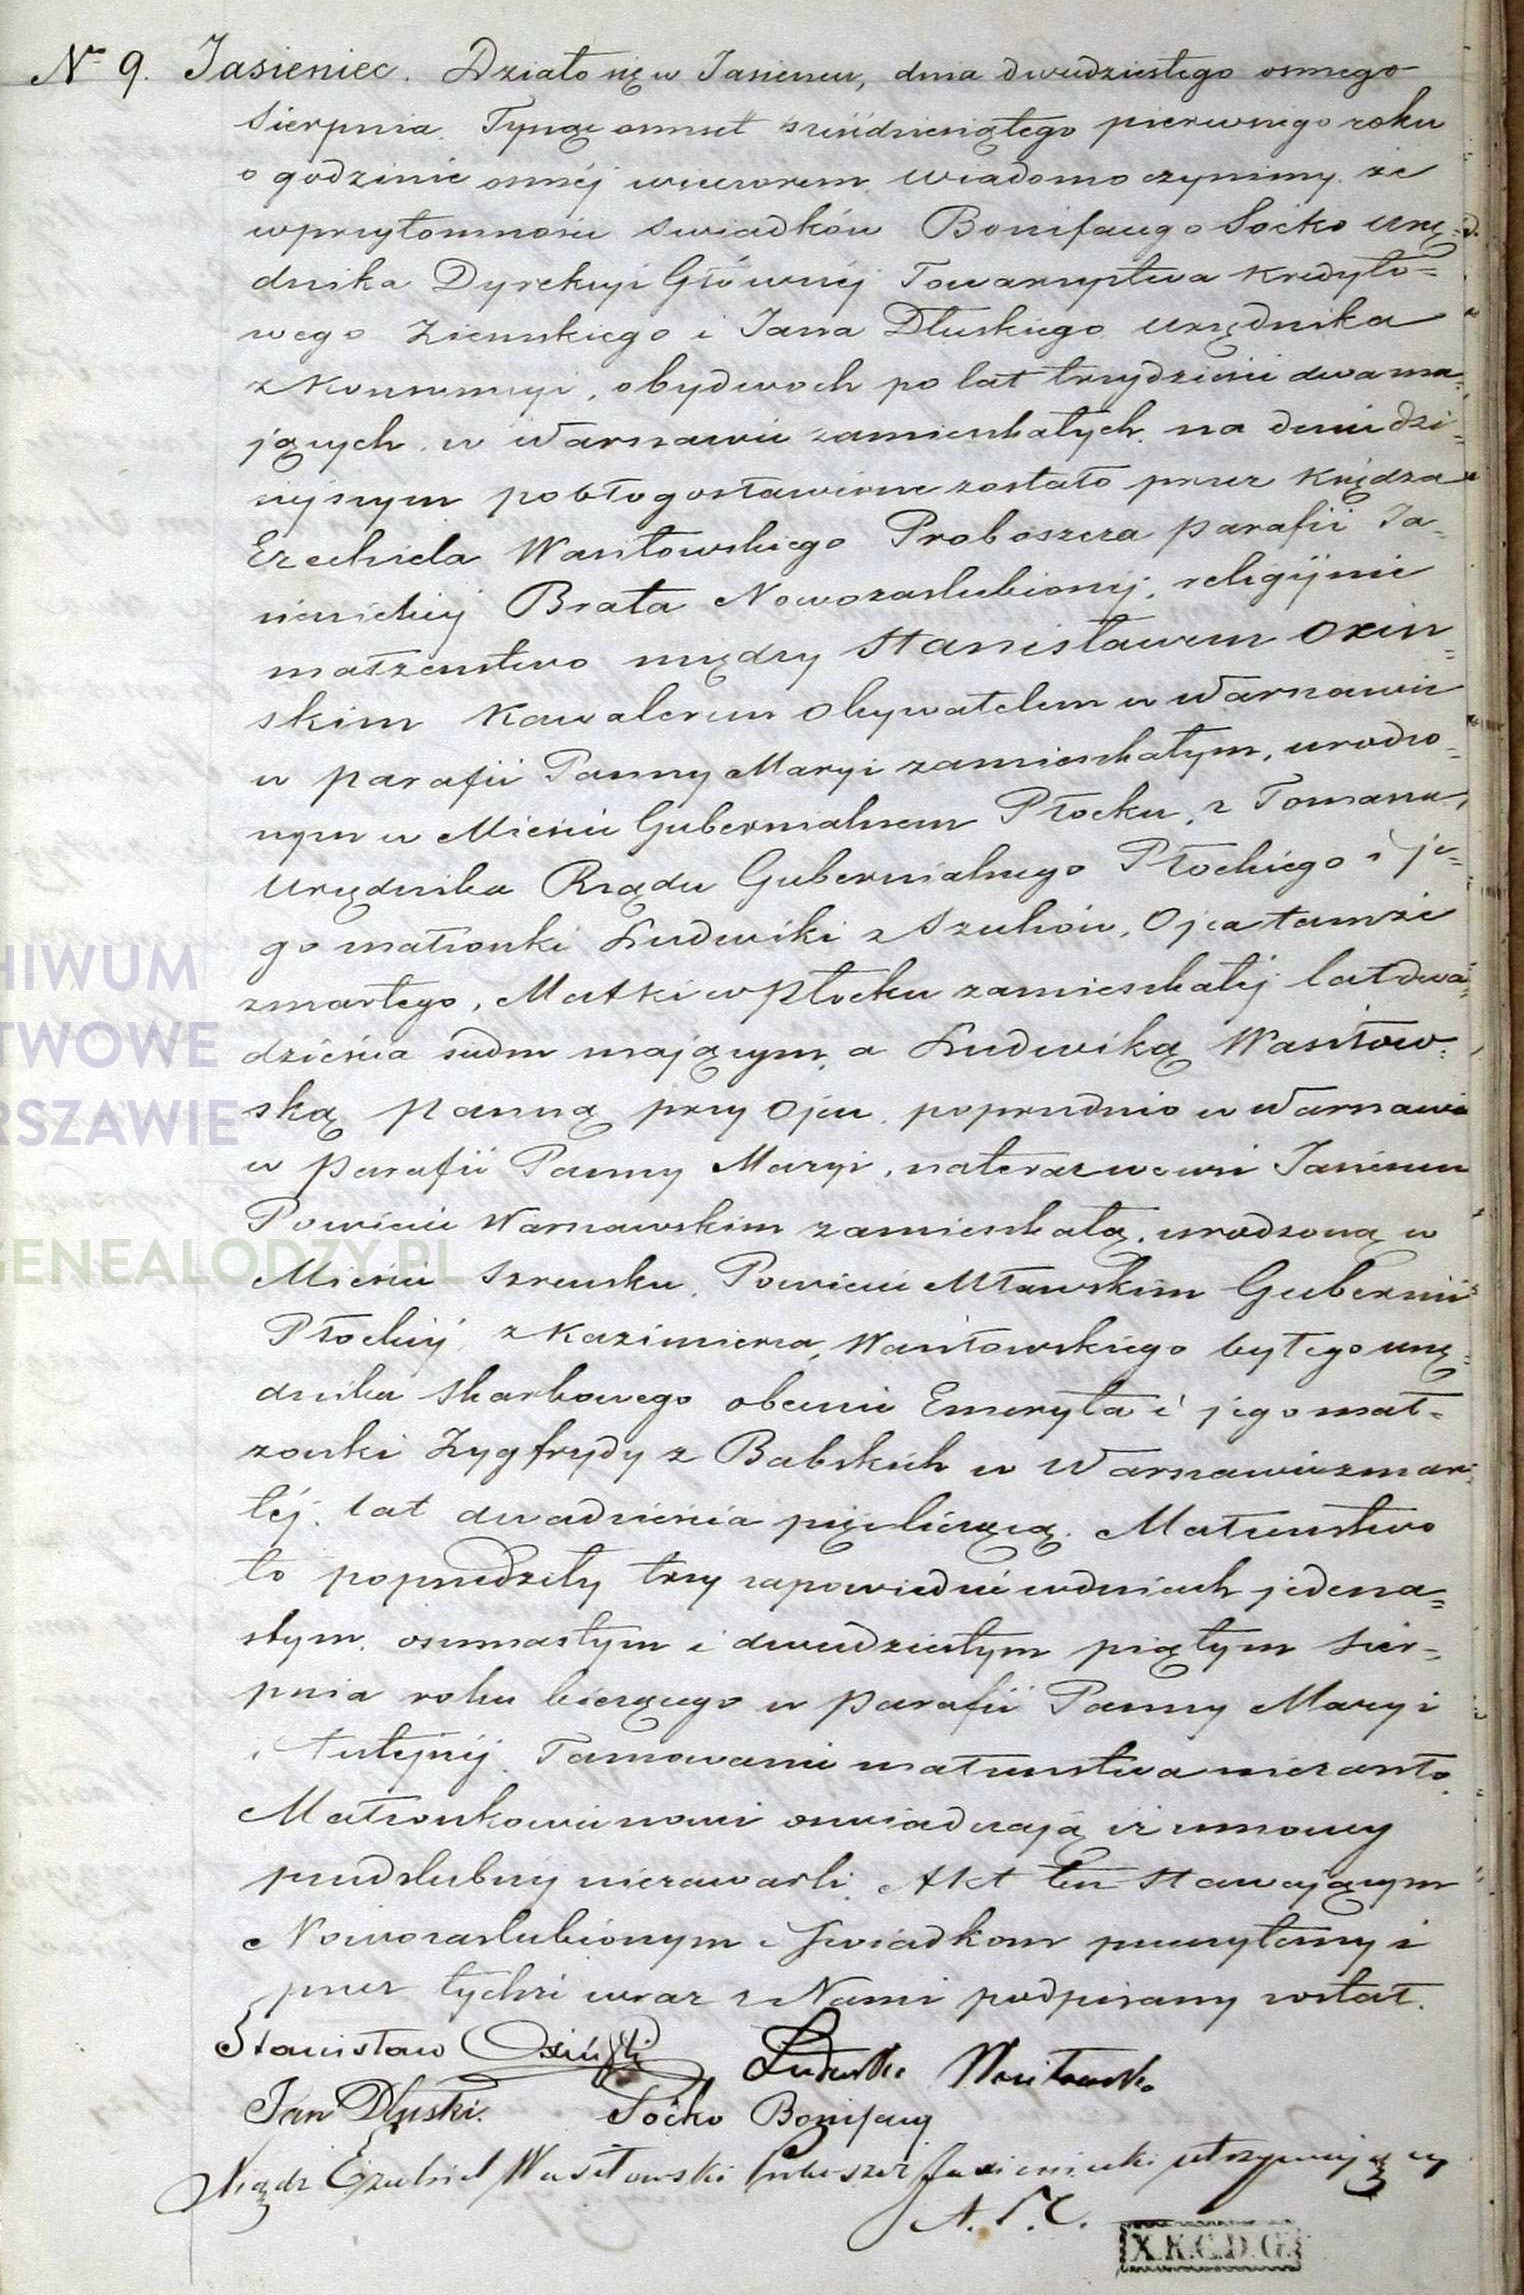 Nr 9. Jasieniec. Działo się w Jasieńcu, dnia dwudziestego osmego
Sierpnia. Tysiąc ośmset sześćdziesiątego pierwszego roku
o godzinie osméj wieczorem. Wiadomo czynimy, że
w przytomności swiadków Bonifacego Soćko urzę-
dnika Dyrekcyi Głównéj Towarzystwa Kredyto=
wego Ziemskiego i Jana Dłuskiego urzędnika
z Konsumcyi, obydwoch po lat trzydzieści dwa ma=
jących, w Warszawie zamieszkałych, na dniu dzi=
siejszym pobłogosławione zostało przez Księdza
Ezechiela Wasiłowskiego Proboszcza parafii Ja-
sienickiéj Brata Nowozaslubionéj, religijnie
małzenstwo między Stanisławem Oxin=
skim Kawalerem Obywatelem w Warszawie
w parafii Panny Maryi zamieszkałym, urodzo-
nym w Mieście Gubernialnem Płocku, z Tomasza,
Urzędnika Rządu Gubernialnego Płockiego i je=
go małżonki Ludwiki z Szulców, Ojca tamże
zmarłego, Matki w Płocku zamieszkałéj lat dwa=
dzieścia siedm mającym, a Ludwiką Wasiłow=
ską panną przy Ojcu, poprzednio w Warszawie
w Parafii Panny Maryi, na teraz we wsi Jasieńcu
Powiecie Warszawskim zamieszkałą, urodzoną w
Mieście Szreńsku, Powiecie Mławskim Gubernii
Płockiéj, z Kazimierza Wasiłowskiego byłego urzę=
dnika Skarbowego obecnie Emeryta i jego mał=
zonki Zygfrydy z Babskich w Warszawie zmar=
łéj, lat dwadzieścia pięć liczącą. Małżeństwo
to poprzedziły trzy zapowiedzie w dniach jedena=
stym, osmnastym i dwudziestym piątym Sier=
pnia roku bieżącego w Parafii Panny Maryi
i tutejszéj. Tamowanie małżeństwa nie zaszło.
Małżonkowie nowi oswiadczają iż umowy
przedslubnéj nie zawarli. Akt ten Stawającym
Nowozaslubionym i Swiadkom przeczytany i
przez tychże wraz z Nami podpisany został.
Stanisław Oxiński Ludwika Wasiłowska
Jan Dłuski. Soćko Bonifacy
Xiądz Ezechiel Wasiłowski Proboszcz Jasieniecki utrzymujący
A. S. C.
X.K.C.D.G.
HIWUM
TWOWE
RSZAWIE
GENEALODZY.PL